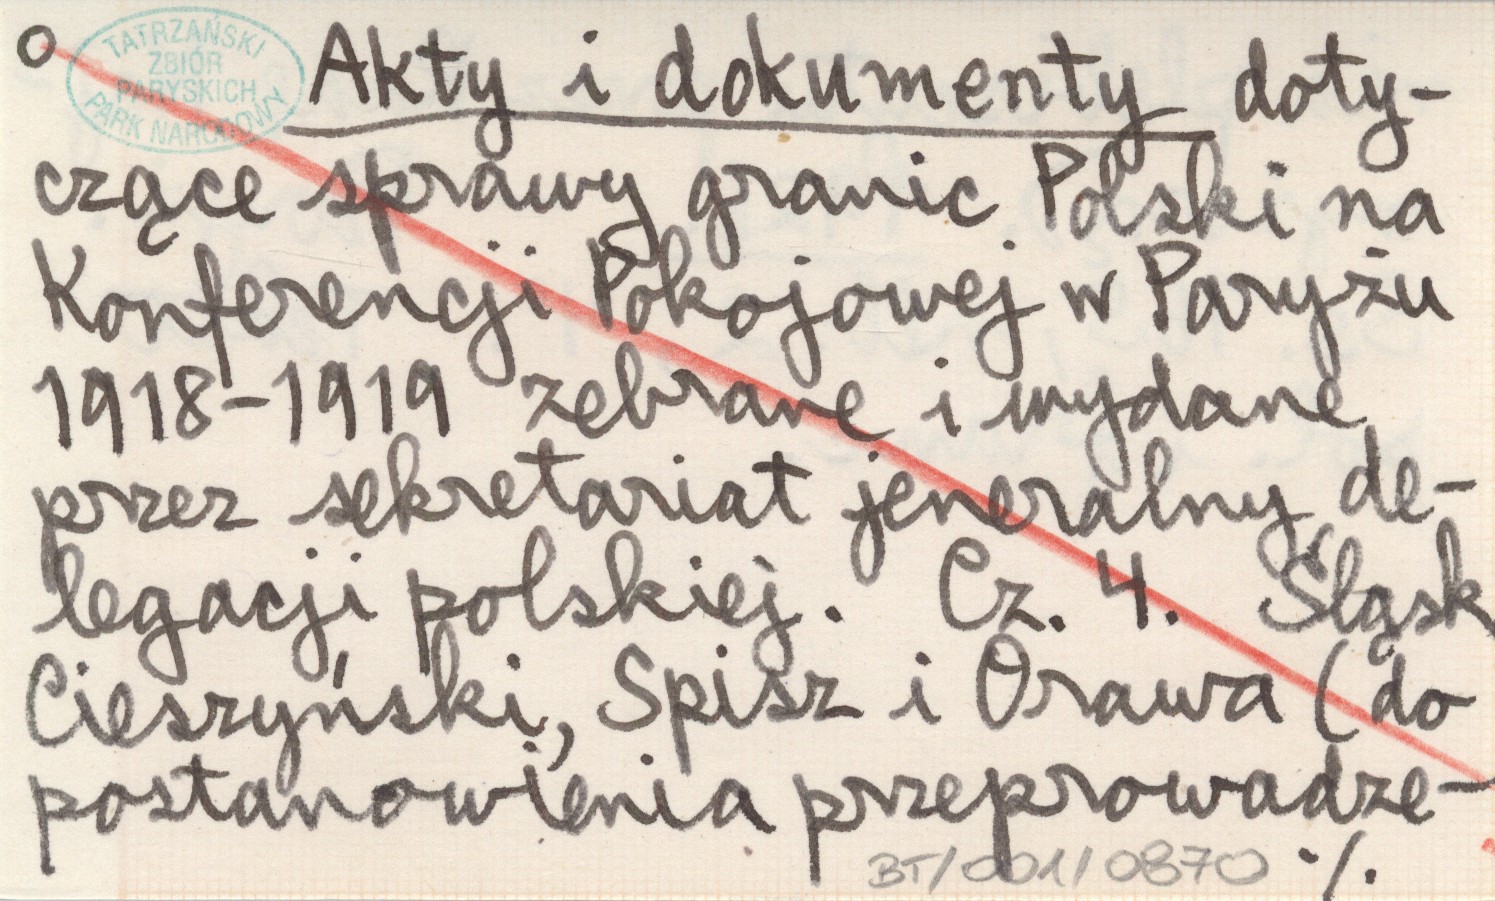 O
TATRZAŃSKI
ZBIÓR
PARYSKICH
PARK NARODOWY
Akty i dokumenty doty-
czące sprawy granic Polski na
Konferencji Pokojowej w Paryżu
1918-1919 zebrane i wydane
przez sekretariat jeneralny de-
legacji polskiej. Cz. 4. Śląsk
Cieszyński, Spisz i Orawa (do
postanowienia przeprowadze-
BT/001/0870 ./.